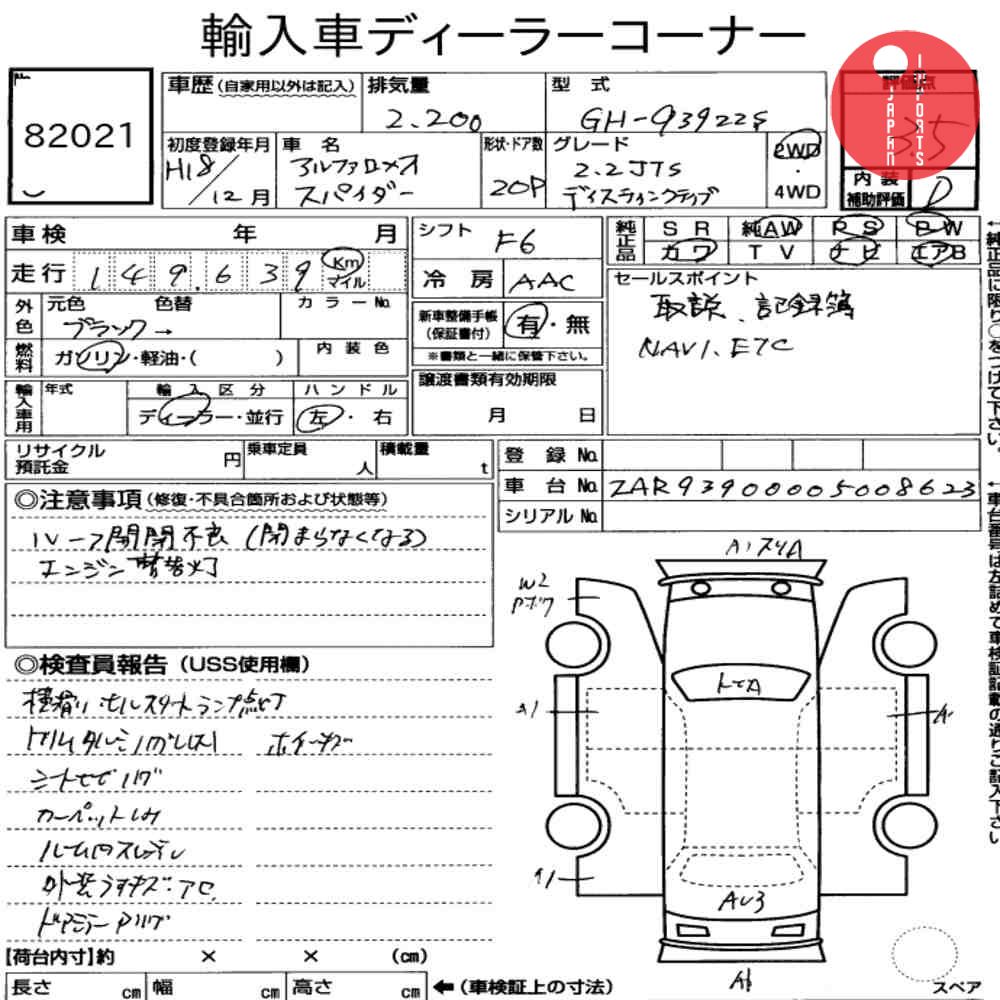 輸入車ディーラーコーナー
No
82021
車歴(自家用以外は記入)
排気量
2.200
型式
GH-93922S
評価点
3.5
JAPAN
IMPORTS
初度登録年月
H18/12月
車名
アルファロメオ
スパイダー
形状・ドア数
2OP
グレード
2.2JTS
ディスティンクティブ
2WD
・
4WD
内装
補助評価
D
車検 年 月
走行 149,639 Km
マイル
シフト F6
冷房 AAC
純正品
SR 純AW PS PW
カワ TV ナビ エアB
外色
元色 色替 カラーNo.
ブラック→
燃料
ガソリン・軽油・( )
内装色
新車整備手帳
(保証書付)
有・無
※書類と一緒に保管下さい。
セールスポイント
取説、記録簿
NAVI、ETC
←純正品に限り○をつけて下さい。
輸入車用
年式
輸入区分
ディーラー・並行
ハンドル
左・右
譲渡書類有効期限
月 日
リサイクル
預託金
円
乗車定員
人
積載量
t
登録No.
車台No. ZAR93900005008623
シリアルNo.
←車台番号は左詰めで車検証記載の通りご記入下さい
◎注意事項(修復・不具合箇所および状態等)
ルーフ開閉不良(閉まらなくなる)
エンジン警告灯
◎検査員報告(USS使用欄)
横滑り、ヒルスタートランプ点灯
ホイールキズ
カーペット
外装
ドアミラー
A1
W2
A1
A1
AU3
A1
【荷台内寸】約 × × (cm)
長さ cm 幅 cm 高さ cm ←(車検証上の寸法)
スペア